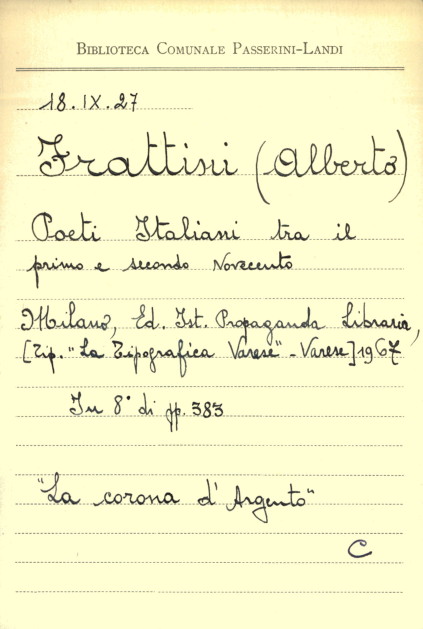 BIBLIOTECA COMUNALE PASSERINI-LANDI
18.IX.27
Frattini (Alberto)
Poeti Italiani tra il
primo e secondo Novecento
Milano, Ed. Ist. Propaganda Libraria,
[Tip. "La Tipografica Varese" - Varese] 1967
In 8° di pp. 383
"La corona d'Argento"
C